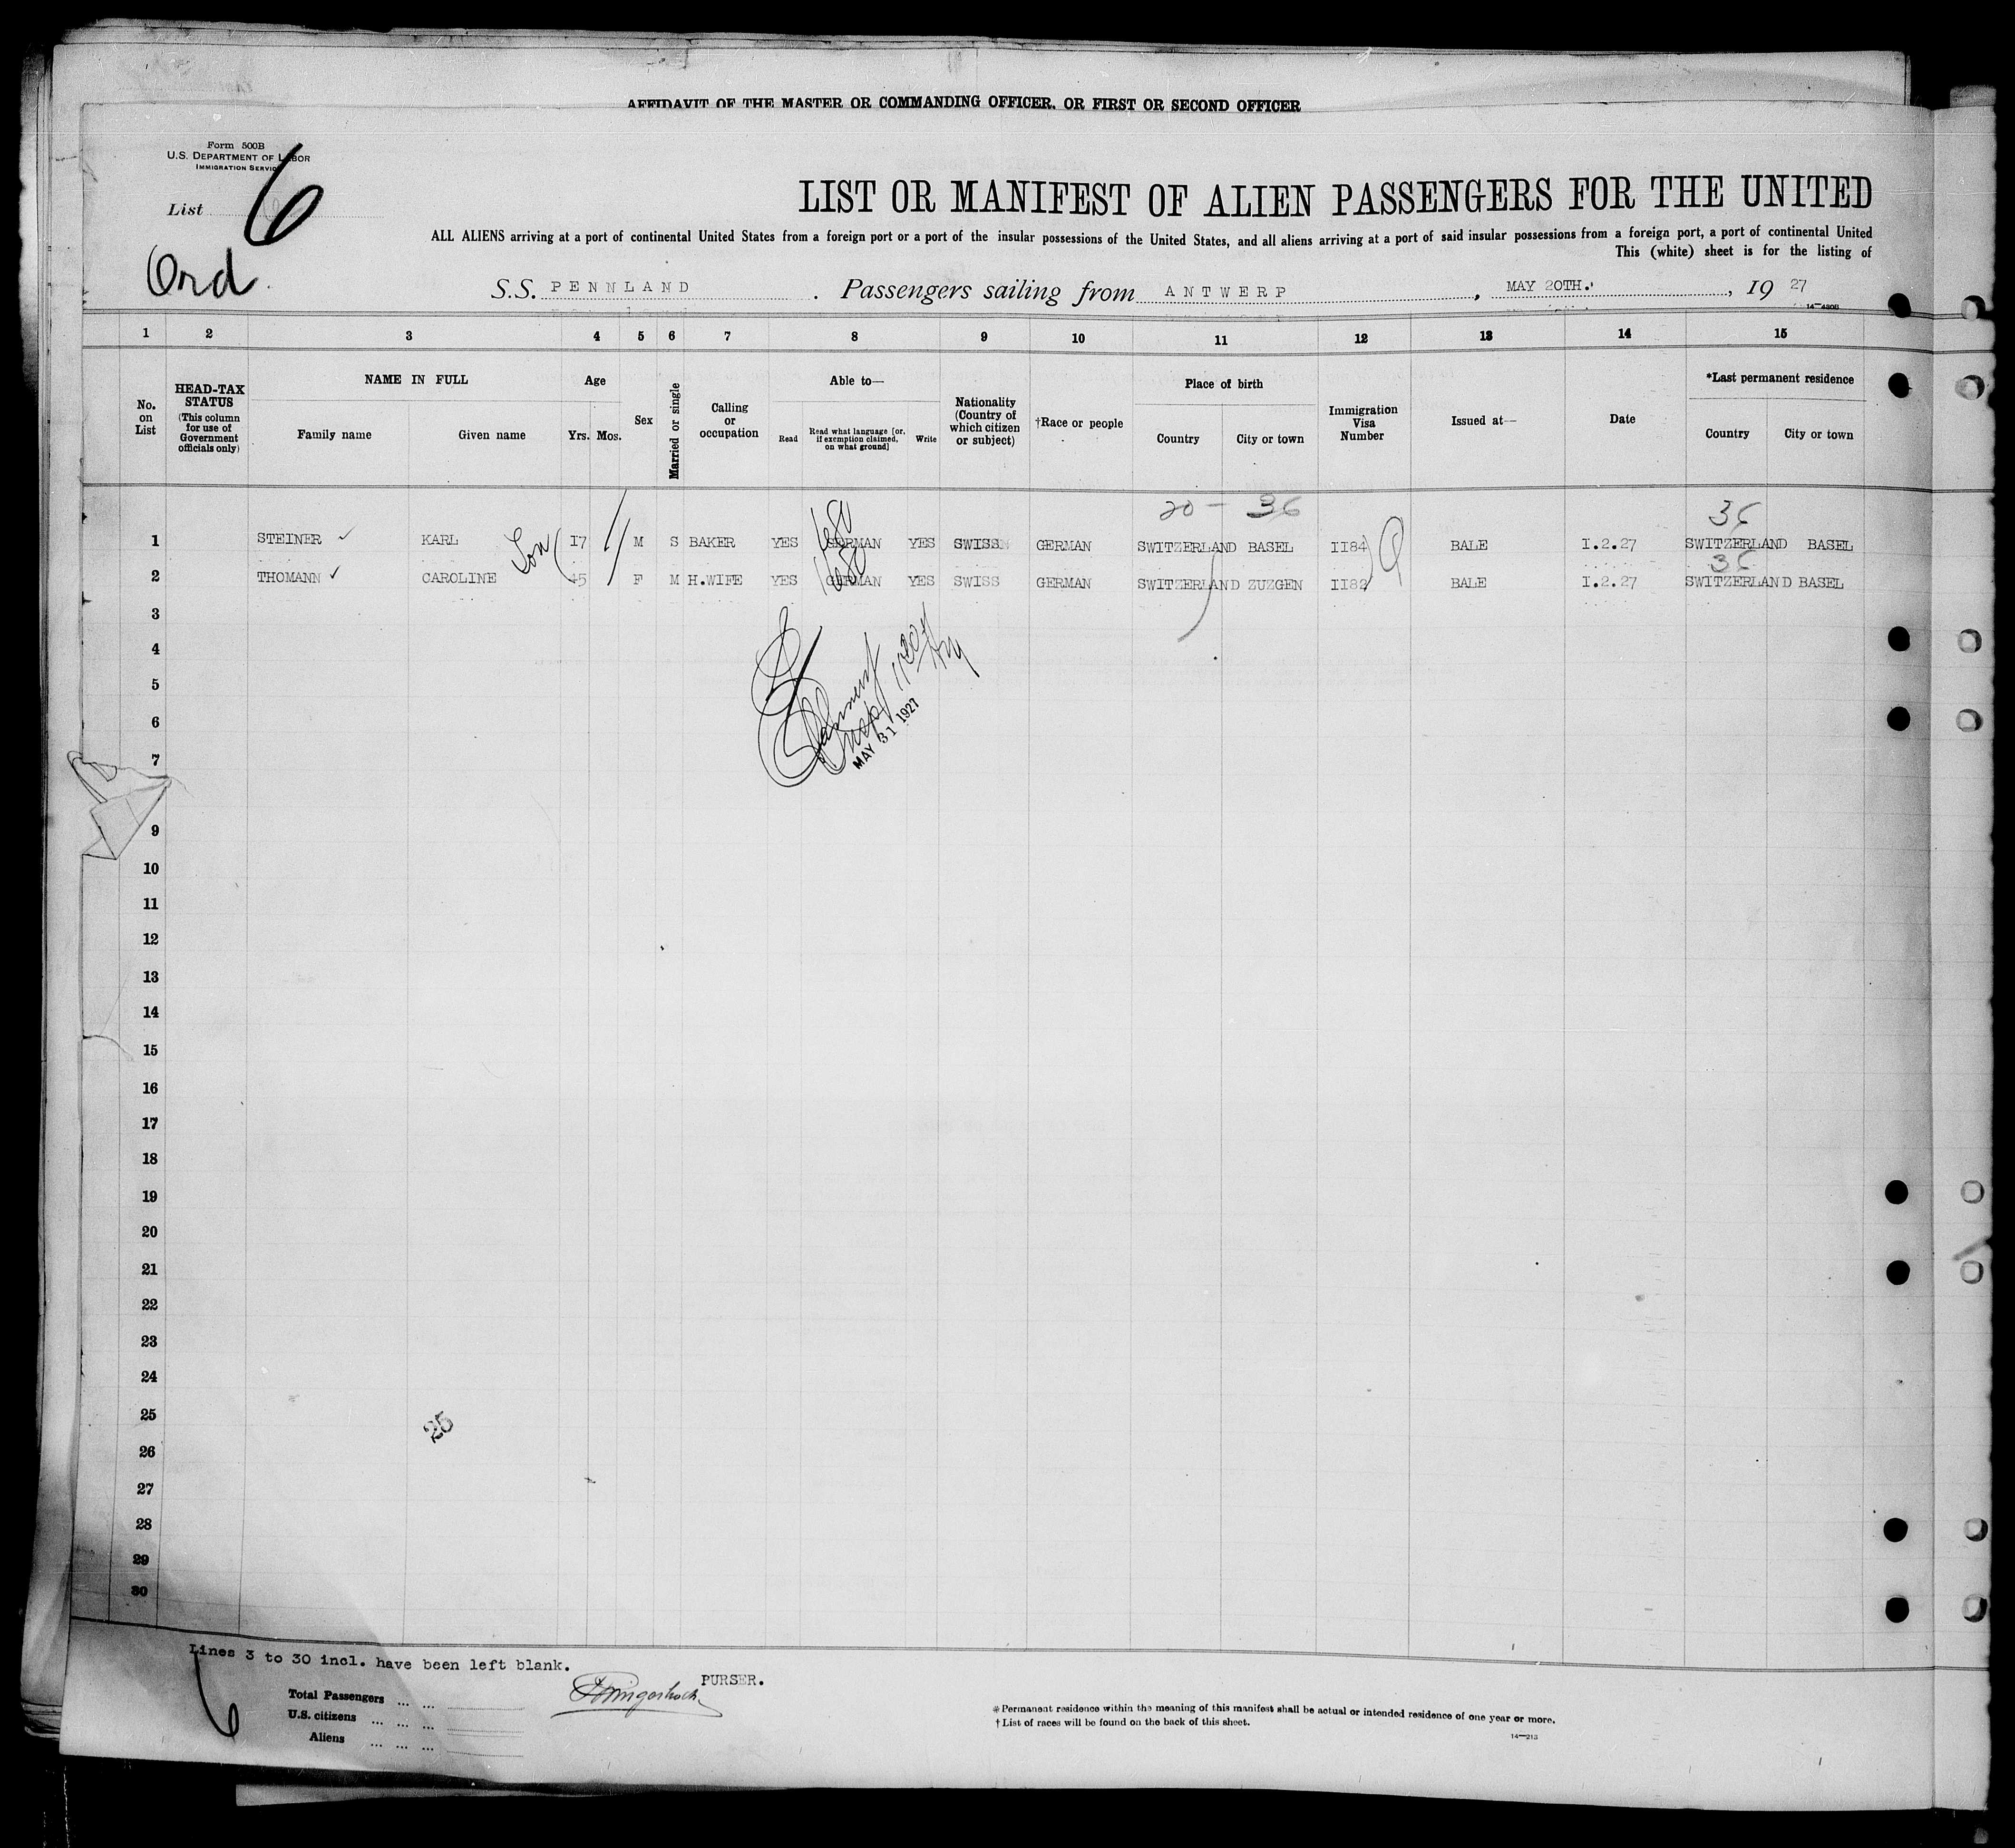 AFFIDAVIT OF THE MASTER OR COMMANDING OFFICER, OR FIRST OR SECOND OFFICER
Form 500B
U.S. DEPARTMENT OF LABOR
IMMIGRATION SERVICE
List 6
Ord.
LIST OR MANIFEST OF ALIEN PASSENGERS FOR THE UNITED
ALL ALIENS arriving at a port of continental United States from a foreign port or a port of the insular possessions of the United States, and all aliens arriving at a port of said insular possessions from a foreign port, a port of continental United
This (white) sheet is for the listing of
S.S. PENNLAND . Passengers sailing from ANTWERP , MAY 20TH. , 19 27
14—430B
1 2 3 4 5 6 7 8 9 10 11 12 13 14 15
No. on List
HEAD-TAX STATUS (This column for use of Government officials only)
NAME IN FULL
Family name Given name
Age
Yrs. Mos.
Sex
Married or single
Calling or occupation
Able to—
Read Read what language [or, if exemption claimed, on what ground] Write
Nationality (Country of which citizen or subject)
†Race or people
Place of birth
Country City or town
Immigration Visa Number
Issued at—
Date
*Last permanent residence
Country City or town
20 - 36 36
1 STEINER ✓ KARL Son 17 M S BAKER YES GERMAN YES SWISS GERMAN SWITZERLAND BASEL I184 BALE I.2.27 SWITZERLAND BASEL
36
2 THOMANN ✓ CAROLINE 45 F M H.WIFE YES GERMAN YES SWISS GERMAN SWITZERLAND ZUZGEN I182 BALE I.2.27 SWITZERLAND BASEL
3
4
5
6
MAY 31 1927
7
9
10
11
12
13
14
15
16
17
18
19
20
21
22
23
24
25
25
26
27
28
29
30
Lines 3 to 30 incl. have been left blank.
PURSER.
6
Total Passengers ... ...
U.S. citizens ... ... ...
Aliens ... ... ...
*Permanent residence within the meaning of this manifest shall be actual or intended residence of one year or more.
†List of races will be found on the back of this sheet.
14—213